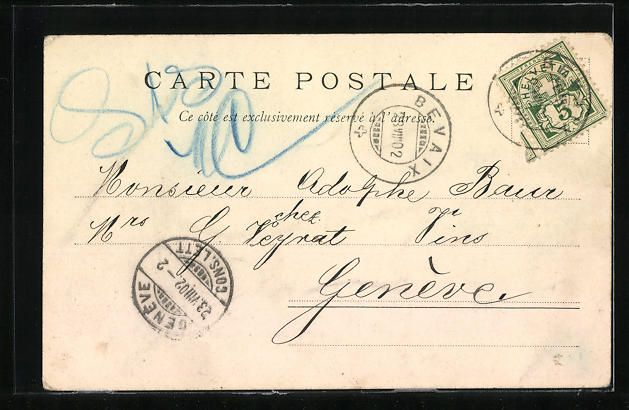 CARTE POSTALE
Ce côté est exclusivement réservé à l'adresse.
BEVAIX
HELVETIA
5
Monsieur Adolphe Baur
chez
Mrs G. Veyrat Vins
Genève
GENÈVE
23.VIII.02 - 2
CONS. LETT.